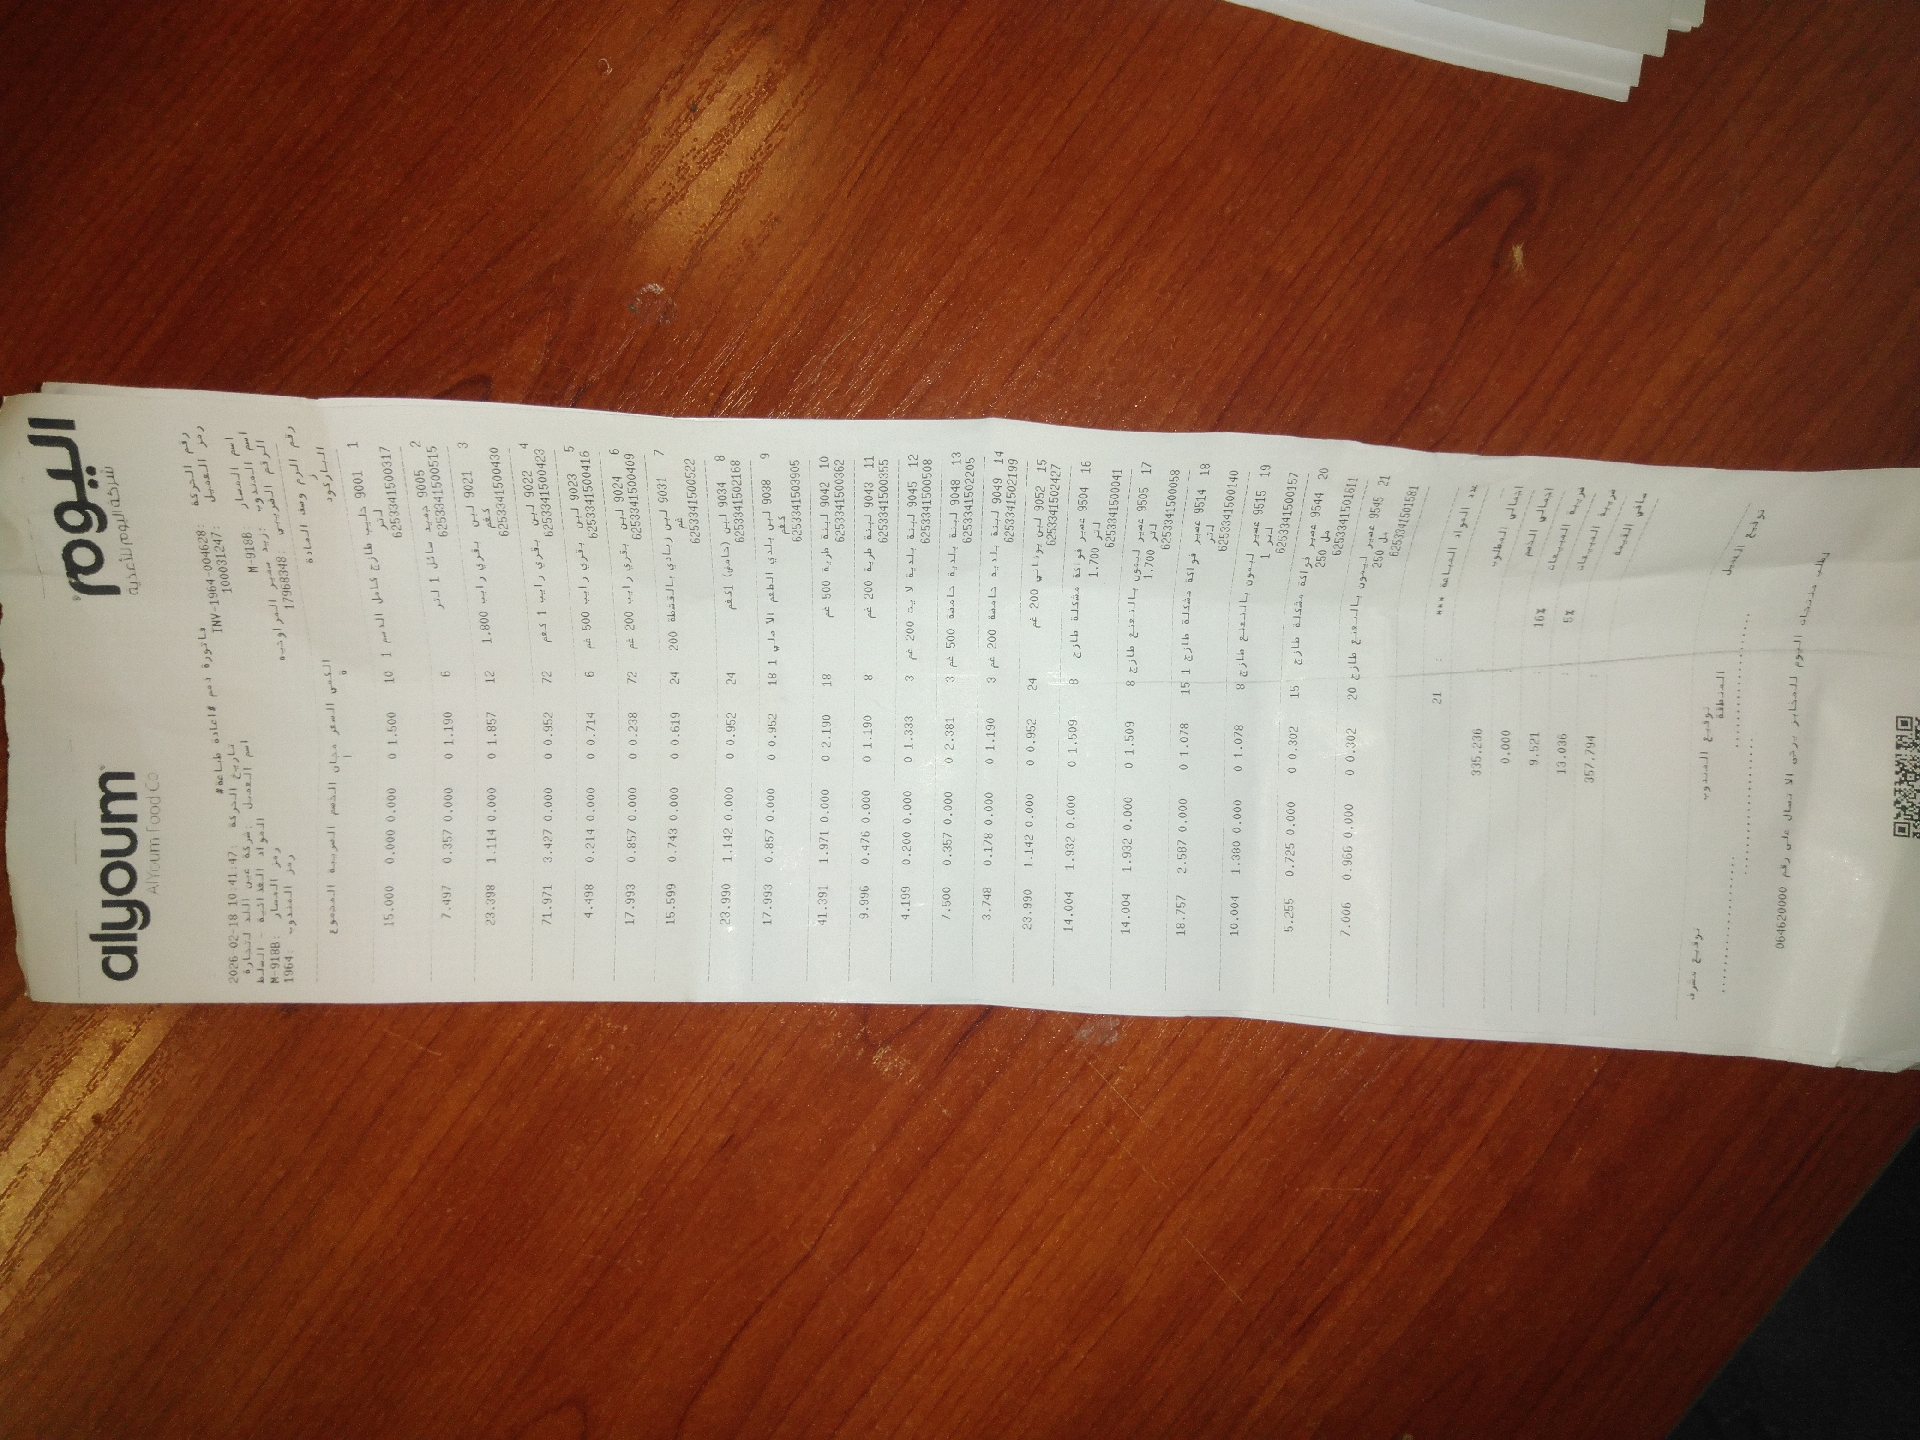 alyoum اليوم
AlYoum Food Co شركة اليوم للأغذية
#اعاده طباعة#
فاتورة ذمم
رقم الحركة INV-1964-004628:
تاريخ الحركة: 2026-02-18 10:41:47
رمز العميل 100031247:
اسم العميل: شركة عين اللد لتجارة المواد الغذائية - السلط
اسم المسار M-918B:
رمز المسار M-918B:
رمز المندوب 1964:
الرقم الضريبي: 17968348
رقم الرمز وصف المادة الكمية السعر مجان الخصم الضريبة المجموع
الباركود
1 9001 حليب طازج كامل الدسم 1 لتر 10 1.500 0 0.000 0.000 15.000
6253341500317
2 9005 جميد سائل 1 لتر 6 1.190 0 0.000 0.357 7.497
6253341500515
3 9021 لبن بقري رايب 1.800 كغم 12 1.857 0 0.000 1.114 23.398
6253341500430
4 9022 لبن بقري رايب 1 كغم 72 0.952 0 0.000 3.427 71.971
6253341500423
5 9023 لبن بقري رايب 500 غم 6 0.714 0 0.000 0.214 4.498
6253341500416
6 9024 لبن بقري رايب 200 غم 72 0.238 0 0.000 0.857 17.993
6253341500409
7 9031 لبن زبادي بالقشطة 200 غم 24 0.619 0 0.000 0.743 15.599
6253341500522
8 9034 لبن (حامض) 1كغم 24 0.952 0 0.000 1.142 23.990
6253341502168
9 9038 لبن بلدي الطعم الاصلي 1 كغم 18 0.952 0 0.000 0.857 17.993
6253341503905
10 9042 لبنة طرية 500 غم 18 2.190 0 0.000 1.971 41.391
6253341500362
11 9043 لبنة طرية 200 غم 8 1.190 0 0.000 0.476 9.996
6253341500355
12 9045 لبنة بلدية لايت 200 غم 3 1.333 0 0.000 0.200 4.199
6253341500508
13 9048 لبنة بلدية حامضة 500 غم 3 2.381 0 0.000 0.357 7.500
6253341502205
14 9049 لبنة بلدية حامضة 200 غم 3 1.190 0 0.000 0.178 3.748
6253341502199
15 9052 لبن يوناني 200 غم 24 0.952 0 0.000 1.142 23.990
6253341502427
16 9504 عصير فواكة مشكلة طازج 1.700 لتر 8 1.509 0 0.000 1.932 14.004
6253341500041
17 9505 عصير ليمون بالنعنع طازج 1.700 لتر 8 1.509 0 0.000 1.932 14.004
6253341500058
18 9514 عصير فواكة مشكلة طازج 1 لتر 15 1.078 0 0.000 2.587 18.757
6253341500140
19 9515 عصير ليمون بالنعنع طازج 1 لتر 8 1.078 0 0.000 1.380 10.004
6253341500157
20 9544 عصير فواكة مشكلة طازج 250 مل 15 0.302 0 0.000 0.725 5.255
6253341501611
21 9545 عصير ليمون بالنعنع طازج 250 مل 20 0.302 0 0.000 0.966 7.006
6253341501581
عدد المواد المباعة *** : 21
اجمالي المطلوب 335.236
اجمالي الخصم 0.000
ضريبة المبيعات 16% : 9.521
ضريبة المبيعات 5% : 13.036
صافي القيمة : 357.794
توقيع العميل
توقيع المندوب
توقيع مشرف المنطقة
لطلب منتجات اليوم للمخابز يرجى الاتصال على رقم 064620000